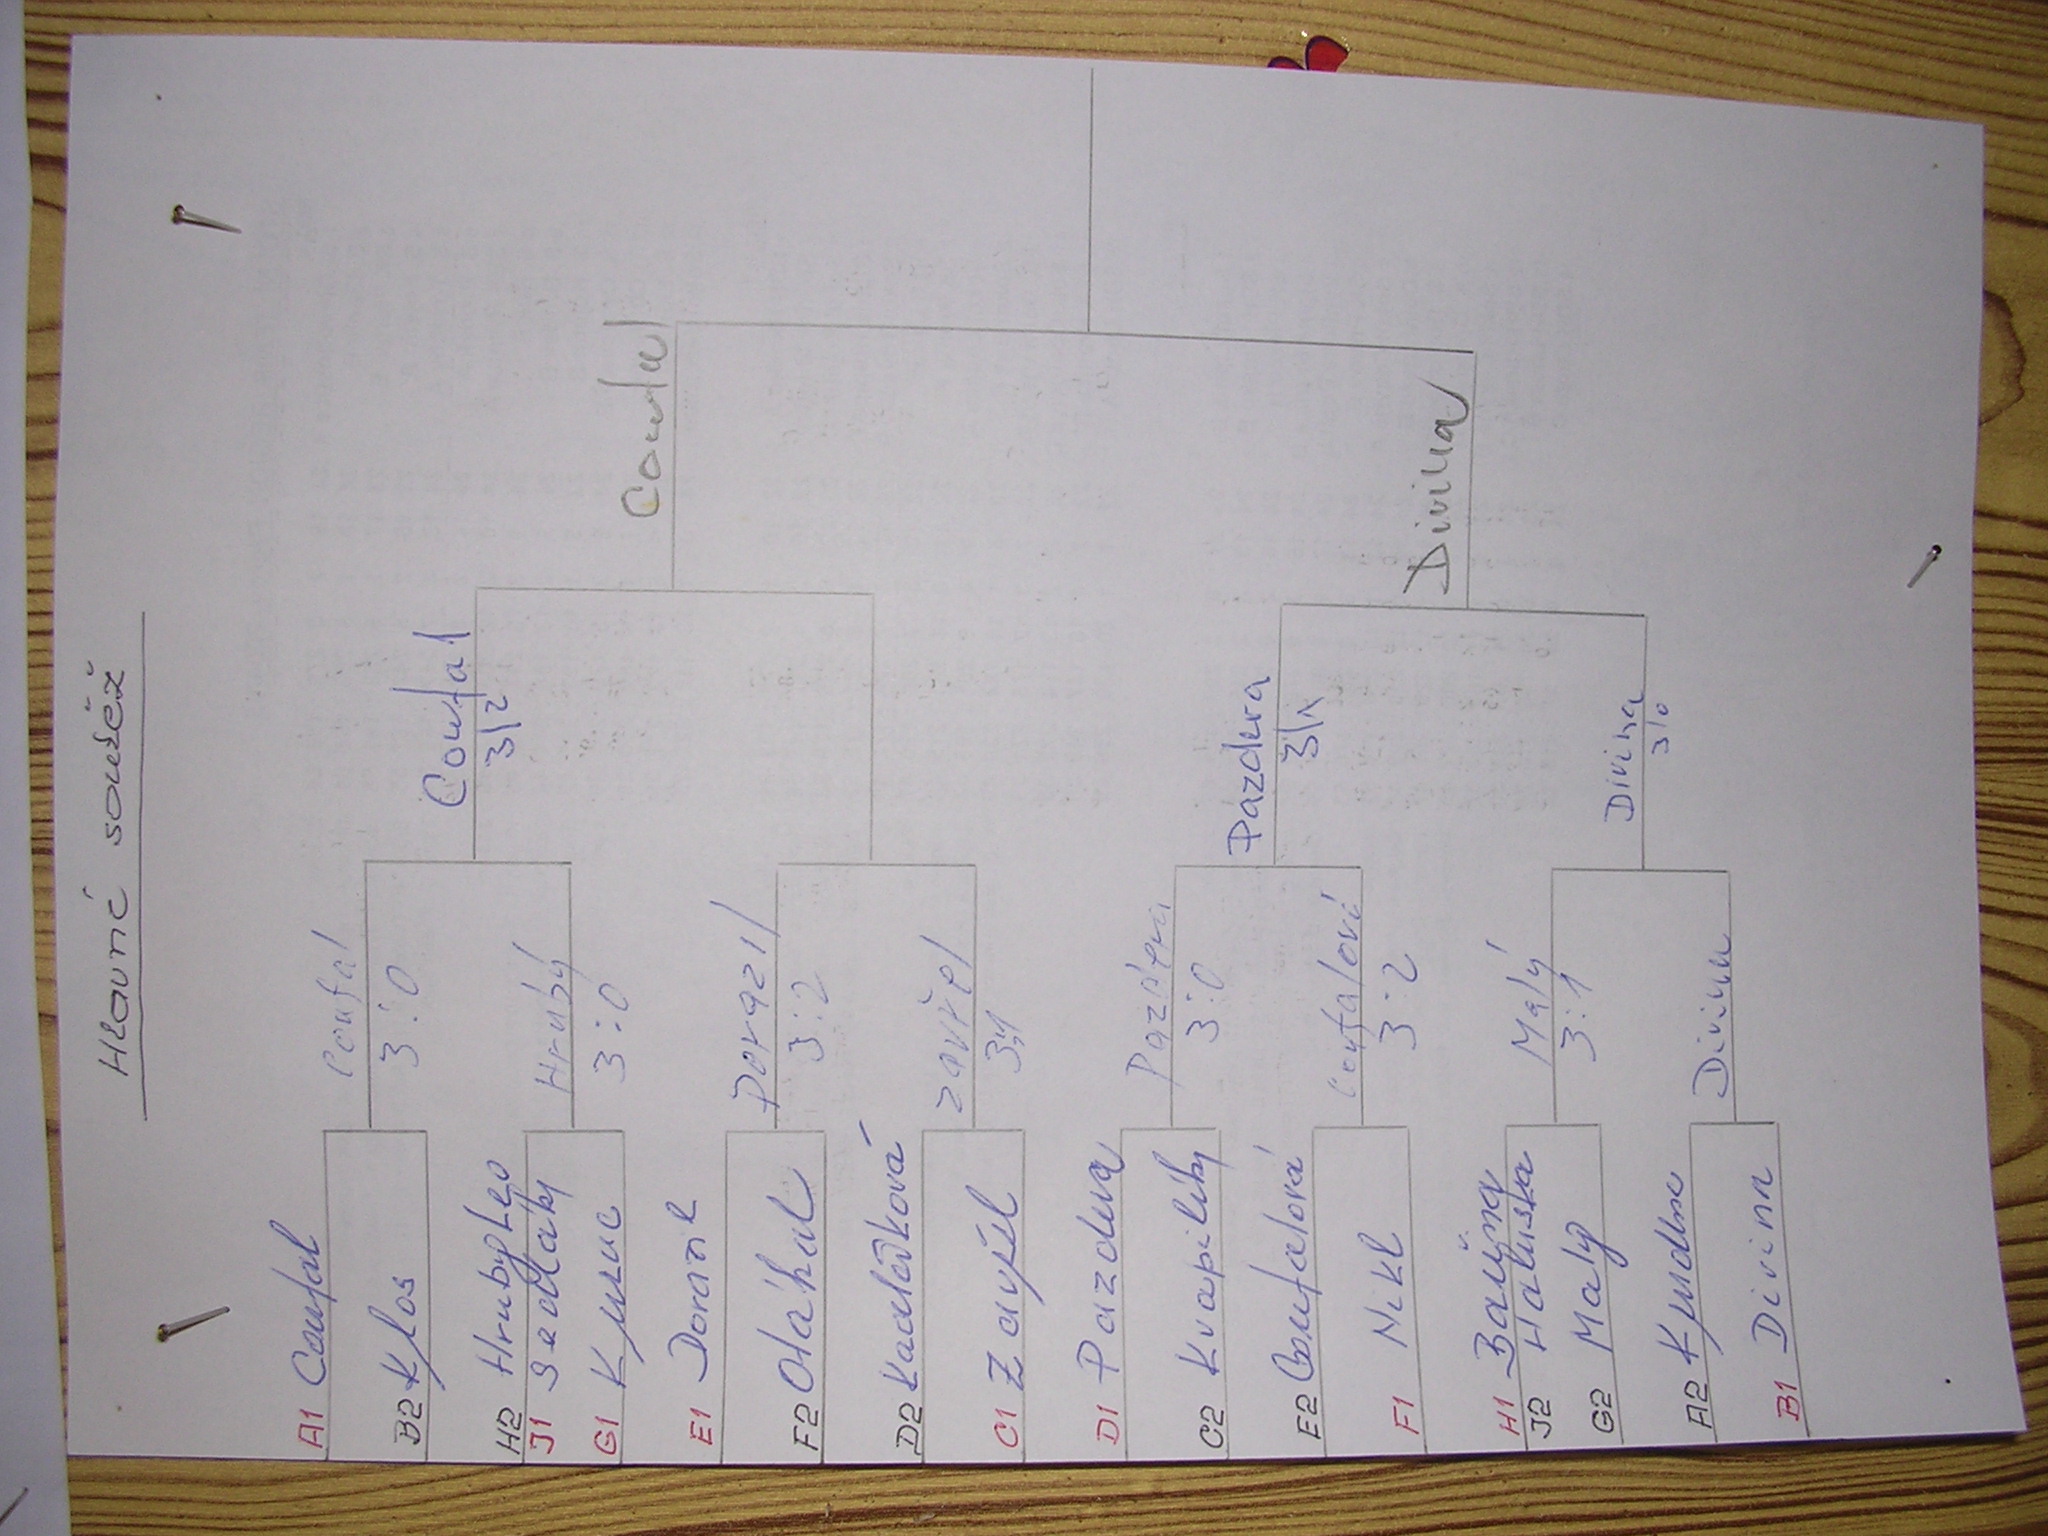 Hlavní soutěž
A1 Coufal
B2 Klos
H2 Hruby Leo
J1 Sedlaky
G1
E1
F2 Otáhal
D2
C1 Zavřel
D1 Pazdera
C2 Kvapiliky
E2 Coufalová
F1 Nikl
H1 Bařina
J2 Haluska
G2 Maly
A2
B1 Divina
Coufal
3:0
Hrubý
3:0
3:2
Zavřel
3:1
Pazdera
3:0
Coufalová
3:2
Malý
3:1
Divina
Coufal
3|2
Pazdera
3|1
Divina
3|0
Coufal
Divina